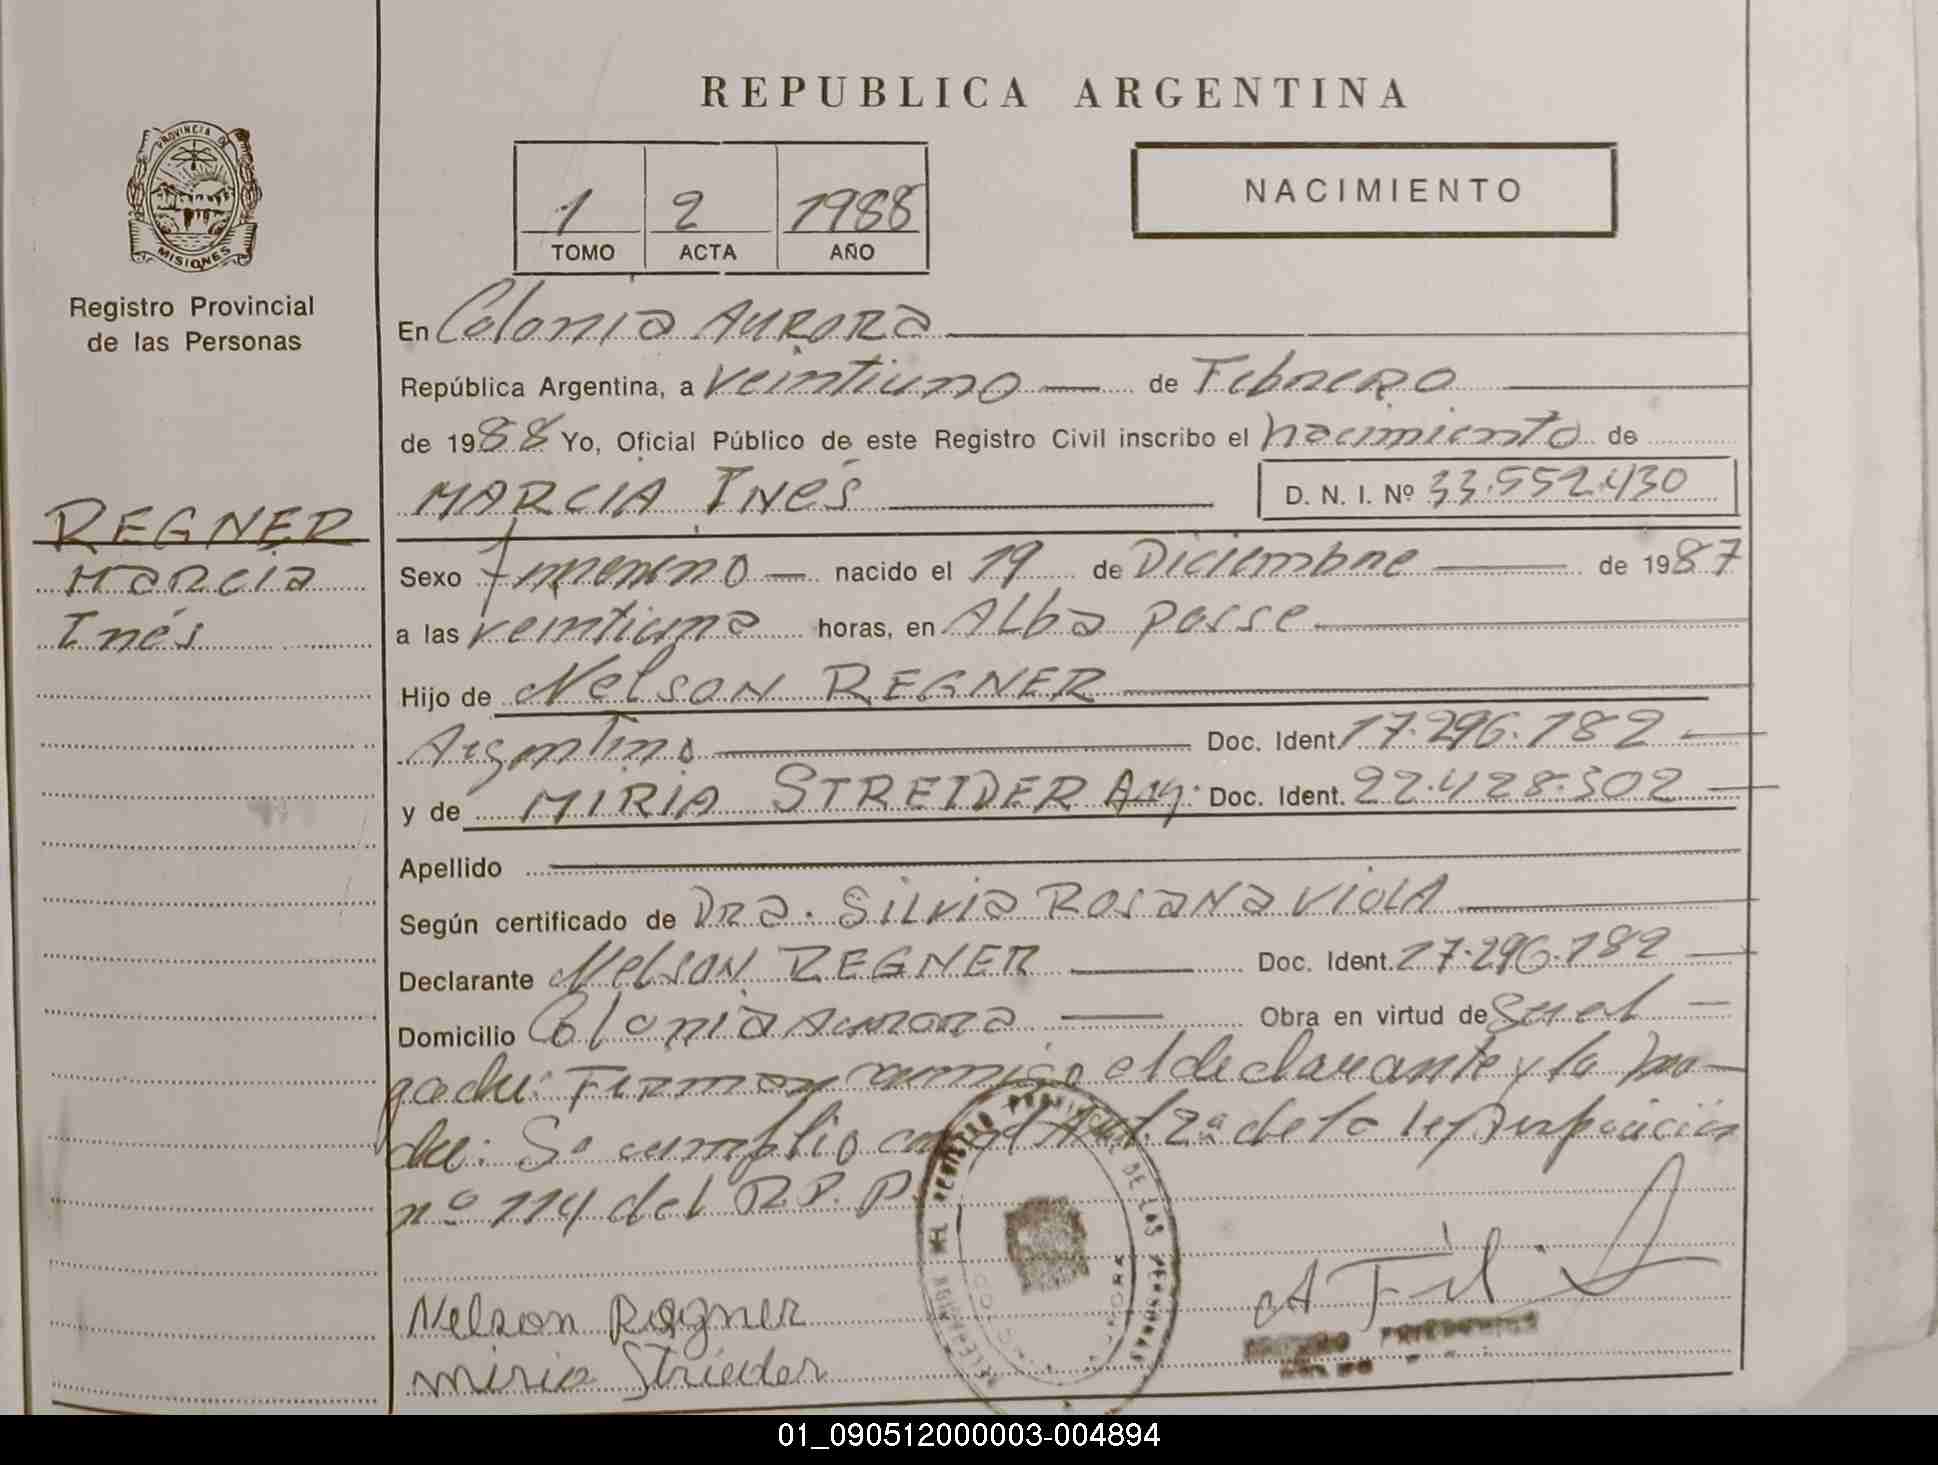 REPUBLICA ARGENTINA
PROVINCIA DE
MISIONES
Registro Provincial
de las Personas
1 2 1988
TOMO ACTA AÑO
NACIMIENTO
En Colonia Aurora
República Argentina, a veintiuno de Febrero
de 1988 Yo, Oficial Público de este Registro Civil inscribo el nacimiento de
MARCIA Inés D. N. I. Nº 33.552.430
REGNER
Marcia
Inés
Sexo femenino nacido el 19 de Diciembre de 1987
a las veintiuna horas, en Alba posse
Hijo de Nelson REGNER
Argentino Doc. Ident. 17.296.182
y de MIRIA STREIDER Arg. Doc. Ident. 22.428.302
Apellido
Según certificado de Dra. Silvia Rosana Viola
Declarante Nelson REGNER Doc. Ident. 17.296.182
Domicilio Colonia Aurora Obra en virtud de su el
padre: Firman conmigo el declarante y la ma-
dre: Se cumplio con el Art. 2º de la
nº 114 del R.P.P.
REGISTRO PROVINCIAL DE LAS PERSONAS
Nelson Regner
miria Strieder
01_090512000003-004894